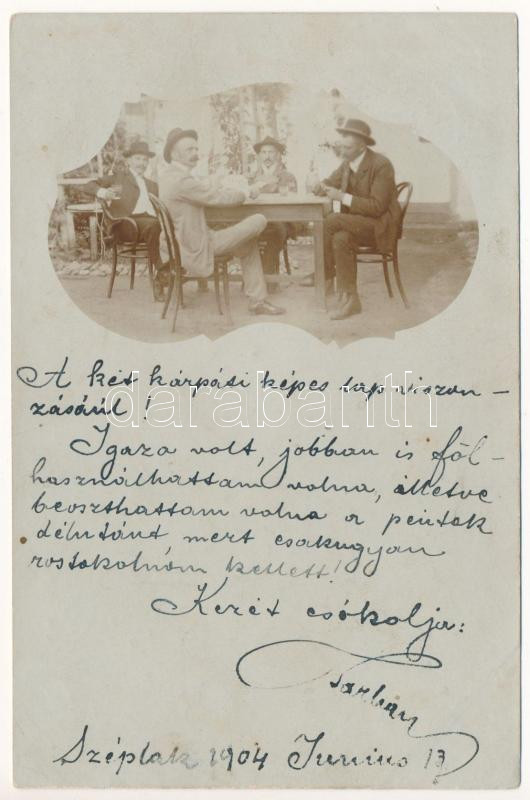 A két kárpáti képes lap viszon-
zásáúl!
Igaza volt, jobban is föl-
használhattam volna, illetve
beoszthattam volna a péntek
délutánt, mert csakugyan
rostokolnom kellett!
Kezét csókolja:
Széplak 1904 Junius 13
darabanth